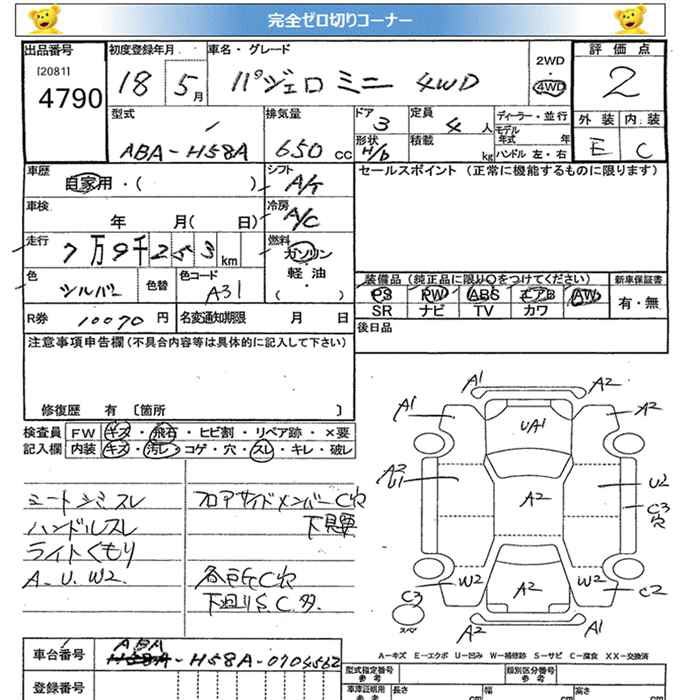 完全ゼロ切りコーナー
出品番号 初度登録年月 車名・グレード 2WD・4WD 評価点
[2081] 4790 18 5月 パジェロ ミニ 4WD 2
型式 排気量 ドア 定員 ディーラー・並行 外装 内装
ABA-H58A 650 cc 3 4人 モデル年式 年 E C
形状 H/b 積載 kg ハンドル 左・右
車歴 自家用・( ) シフト A/T セールスポイント (正常に機能するものに限ります)
車検 年 月( 日) 冷房 A/C
走行 7万9千253km 燃料 ガソリン 軽・油 ( )
色 シルバー 色替 色コード A31
装備品(純正品に限り○をつけてください) 新車保証書
PS PW ABS エアB AW 有・無
SR ナビ TV カワ
R券 10070円 名変通知期限 月 日 後日品
注意事項申告欄(不具合内容等は具体的に記入して下さい)
修復歴 有 〔箇所 〕
検査員 FW キズ・飛石・ヒビ割・リペア跡・×要
記入欄 内装 キズ・汚レ・コゲ・穴・スレ・キレ・破レ
シートシミスレ フロアサイドメンバーC穴
ハンドルスレ 下見要
ライトくもり
A.U.W2. 各戸尻C穴
下回りS.C.多.
A1 A2
A1 UA1 A2
A2 U1 A2 U2
C3 穴
W2 A2 W2 C2
C3 スペア
A2 A1
A-キズ E-エクボ U-凹み W-補修跡 S-サビ C-腐食 XX-交換済
車台番号 ABA H58A-H58A-0704562 型式指定番号 参考 類別区分番号 参考
登録番号 車庫証明用 参考 長さ cm 幅 cm 高さ cm